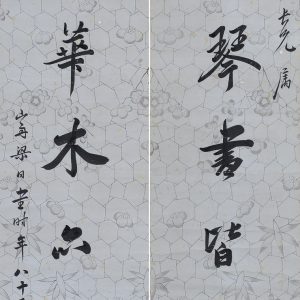 屬
琴書皆
華木亦
山舟梁同書時年八十